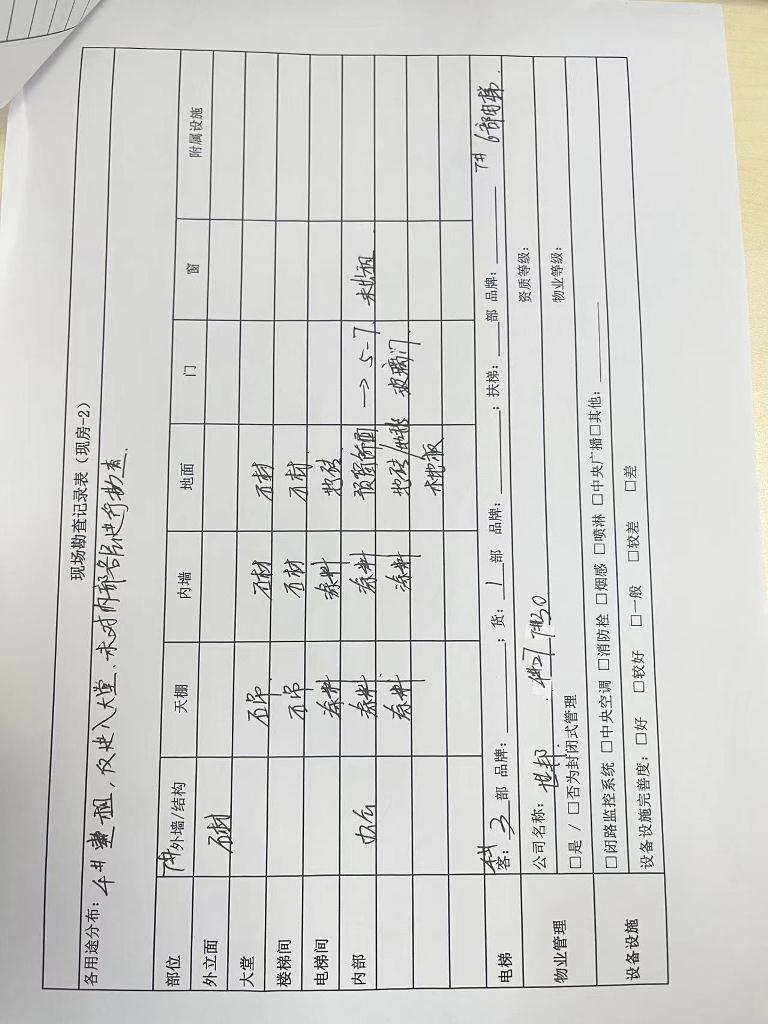 现场勘查记录表(现房-2)
各用途分布: 4# 整租,仅进入大堂、未对内部各层进行勘查.
部位 7#外墙/结构 天棚 内墙 地面 门 窗 附属设施
外立面 石材
大堂 石吊 石材 石材
楼梯间 石吊 石材 石材
电梯间 涂料 涂料 地砖
内部 办公 涂料 涂料 → 5-7 未出租
涂料 涂料 地砖/地毯 玻璃门
木地板
7# 6部电梯.
电梯 客: 3 部 品牌: ; 货: 1 部 品牌: ; 扶梯: 部 品牌:
物业管理 公司名称: 世邦 7#30 资质等级:
□是 / □否为封闭式管理 物业等级:
设备设施 □闭路监控系统 □中央空调 □消防栓 □烟感 □喷淋 □中央广播□其他:
设备设施完善度: □好 □较好 □一般 □较差 □差